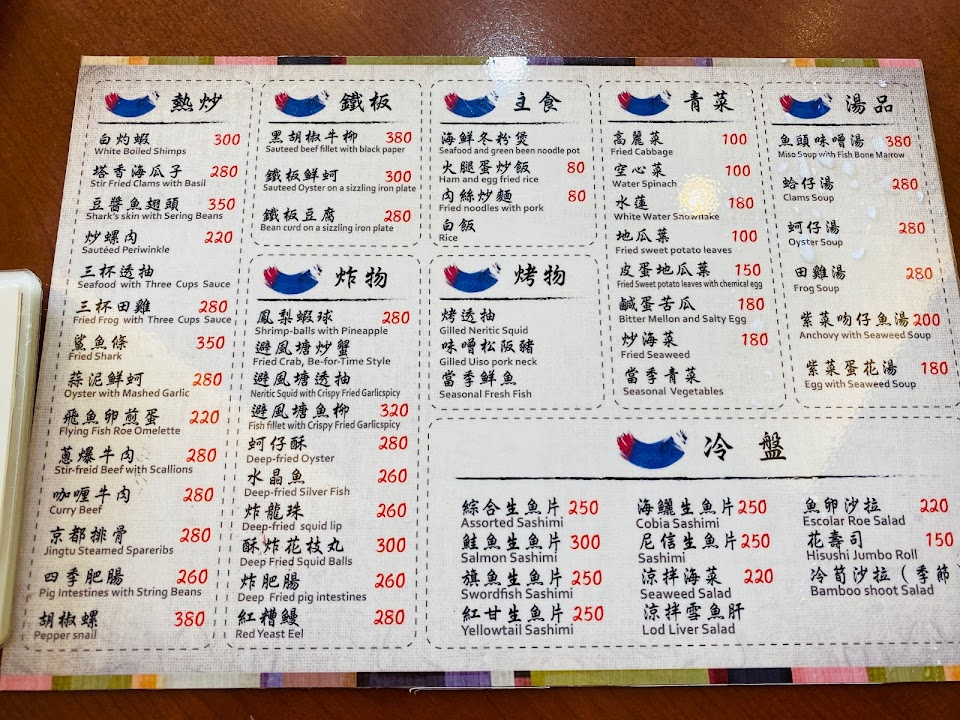 熱炒
白灼蝦 300
White Boiled Shimps
塔香海瓜子 280
Stir Fried Clams with Basil
豆醬魚翅頭 350
Shark's skin with Sering Beans
炒螺肉 220
Sautéed Periwinkle
三杯透抽
Seafood with Three Cups Sauce
三杯田雞 280
Fried Frog with Three Cups Sauce
鯊魚條 350
Fried Shark
蒜泥鮮蚵 280
Oyster with Mashed Garlic
飛魚卵煎蛋 220
Flying Fish Roe Omelette
蔥爆牛肉 280
Stir-freid Beef with Scallions
咖喱牛肉 280
Curry Beef
京都排骨 280
Jingtu Steamed Spareribs
四季肥腸 260
Pig Intestines with String Beans
胡椒螺 380
Pepper snail
鐵板
黑胡椒牛柳 380
Sauteed beef fillet with black paper
鐵板鮮蚵 300
Sauteed Oyster on a sizzling iron plate
鐵板豆腐 280
Bean curd on a sizzling iron plate
炸物
鳳梨蝦球 280
Shrimp-balls with Pineapple
避風塘炒蟹
Fried Crab, Be-for-Time Style
避風塘透抽
Neritic Squid with Crispy Fried Garlicspicy
避風塘魚柳 320
Fish fillet with Crispy Fried Garlicspicy
蚵仔酥 280
Deep-fried Oyster
水晶魚 260
Deep-fried Silver Fish
炸龍珠 260
Deep-fried squid lip
酥炸花枝丸 300
Deep Fried Squid Balls
炸肥腸 260
Deep Fried pig intestines
紅糟鰻 280
Red Yeast Eel
主食
海鮮冬粉煲
Seafood and green been noodle pot
火腿蛋炒飯 80
Ham and egg fried rice
肉絲炒麵 80
Fried noodles with pork
白飯
Rice
烤物
烤透抽
Gilled Neritic Squid
味噌松阪豬
Gilled Uiso pork neck
當季鮮魚
Seasonal Fresh Fish
青菜
高麗菜 100
Fried Cabbage
空心菜 100
Water Spinach
水蓮 180
White Water Snowflake
地瓜葉 100
Fried sweet potato leaves
皮蛋地瓜葉 150
Fried Sweet potato leaves with chemical egg
鹹蛋苦瓜 180
Bitter Mellon and Salty Egg
炒海菜 180
Fried Seaweed
當季青菜
Seasonal Vegetables
湯品
魚頭味噌湯 380
Miso Soup with Fish Bone Marrow
蛤仔湯 280
Clams Soup
蚵仔湯 280
Oyster Soup
田雞湯 280
Frog Soup
紫菜吻仔魚湯 200
Anchovy with Seaweed Soup
紫菜蛋花湯 180
Egg with Seaweed Soup
冷盤
綜合生魚片 250
Assorted Sashimi
鮭魚生魚片 300
Salmon Sashimi
旗魚生魚片 250
Swordfish Sashimi
紅甘生魚片 250
Yellowtail Sashimi
海鱺生魚片 250
Cobia Sashimi
尼信生魚片 250
Sashimi
涼拌海菜 220
Seaweed Salad
涼拌雪魚肝
Lod Liver Salad
魚卵沙拉 220
Escolar Roe Salad
花壽司 150
Hisushi Jumbo Roll
冷筍沙拉（季節）
Bamboo shoot Salad